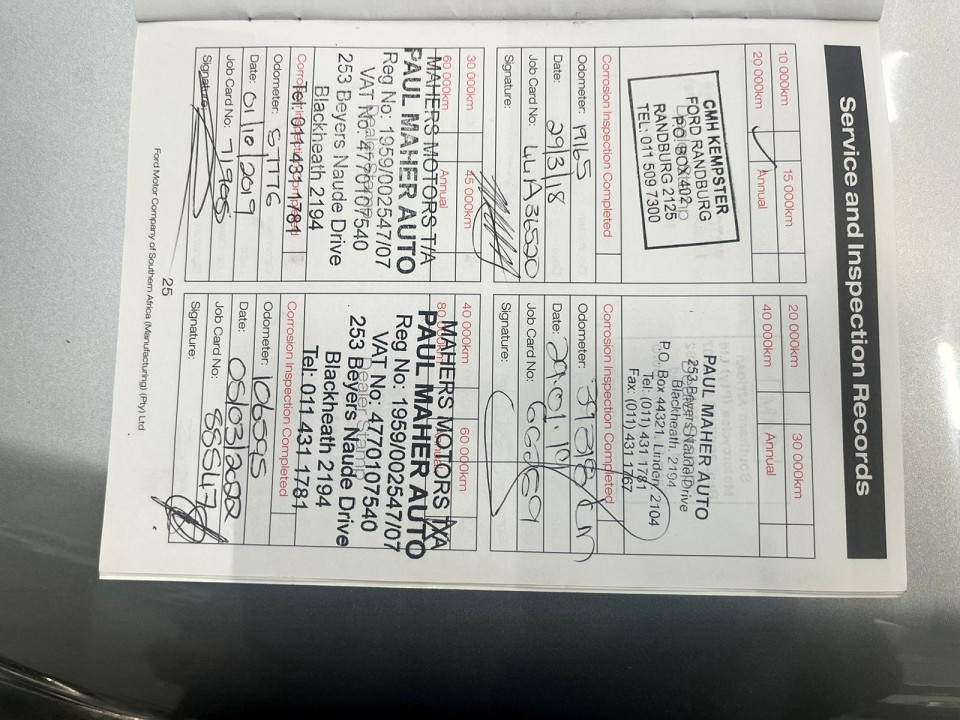 Service and Inspection Records
10 000km
15 000km
20 000km
Annual
CMH KEMPSTER
FORD RANDBURG
P.O. BOX 4021
RANDBURG 2125
TEL: 011 509 7300
Corrosion Inspection Completed
Odometer:
Date: 29/3/18
Job Card No:
Signature:
20 000km
30 000km
40 000km
Annual
PAUL MAHER AUTO
253 Beyers Naude Drive
Blackheath. 2194
Tel: (011) 431 1781
P.O. Box 44321, Linden, 2104
Fax: (011) 431 1767
Corrosion Inspection Completed
Odometer:
Date:
Job Card No: 66369
Signature:
30 000km
45 000km
60 000km
Annual
MAHERS MOTORS T/A
PAUL MAHER AUTO
Reg No: 1959/002547/07
VAT No: 4770107540
Dealer Stamp
253 Beyers Naude Drive
Blackheath 2194
Tel: 011 431 1781
Corrosion Inspection Completed
Odometer:
Date: 01/10/2019
Job Card No: 71905
Signature:
40 000km
60 000km
80 000km
MAHERS MOTORS T/A
PAUL MAHER AUTO
Reg No: 1959/002547/07
VAT No: 4770107540
Dealer Stamp
253 Beyers Naude Drive
Blackheath 2194
Tel: 011 431 1781
Corrosion Inspection Completed
Odometer: 106595
Date: 08/03/2022
Job Card No: 88547
Signature:
25
Ford Motor Company of Southern Africa (Manufacturing) (Pty) Ltd